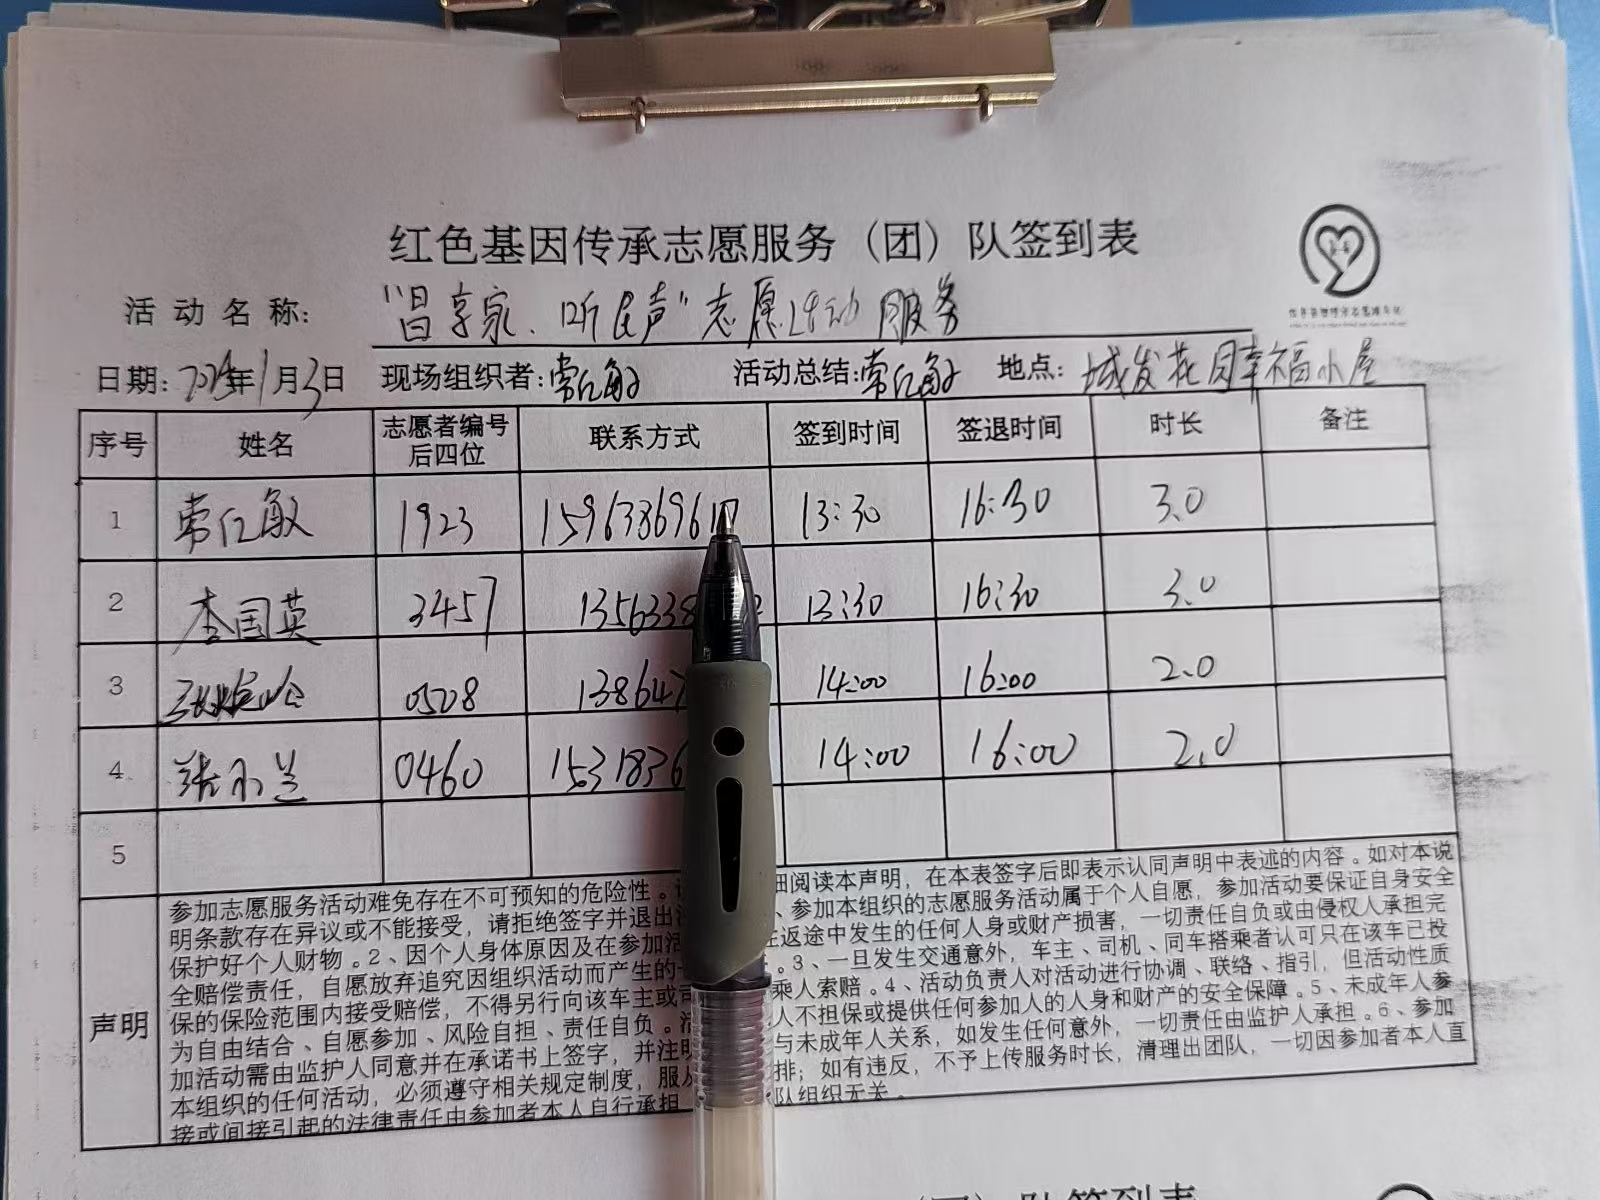 红色基因传承志愿服务（团）队签到表
活动名称: "昌享家、听民声"志愿活动服务
日期: 年1月3日 现场组织者:常仁敏 活动总结:常仁敏 地点: 城发花园幸福小屋
序号 姓名 志愿者编号后四位 联系方式 签到时间 签退时间 时长 备注
1 常仁敏 1923 159638696 13:30 16:30 3.0
2 李国英 3457 1356338 13:30 16:30 3.0
3 0528 13864 14:00 16:00 2.0
4 0460 1531836 14:00 16:00 2.0
5
声明
参加志愿服务活动难免存在不可预知的危险性。 细阅读本声明，在本表签字后即表示认同声明中表述的内容。如对本说
明条款存在异议或不能接受，请拒绝签字并退出 、参加本组织的志愿服务活动属于个人自愿，参加活动要保证自身安全
保护好个人财物。2、因个人身体原因及在参加活 返途中发生的任何人身或财产损害，一切责任自负或由侵权人承担完
全赔偿责任，自愿放弃追究因组织活动而产生的 。3、一旦发生交通意外，车主、司机、同车搭乘者认可只在该车已投
保的保险范围内接受赔偿，不得另行向该车主或司 乘人索赔。4、活动负责人对活动进行协调、联络、指引，但活动性质
为自由结合、自愿参加、风险自担、责任自负。 人不担保或提供任何参加人的人身和财产的安全保障。5、未成年人参
加活动需由监护人同意并在承诺书上签字，并注明 与未成年人关系，如发生任何意外，一切责任由监护人承担。6、参加
本组织的任何活动，必须遵守相关规定制度，服从 排；如有违反，不予上传服务时长，清理出团队，一切因参加者本人直
接或间接引起的法律责任由参加者本人自行承担 队组织无关。
队签到表